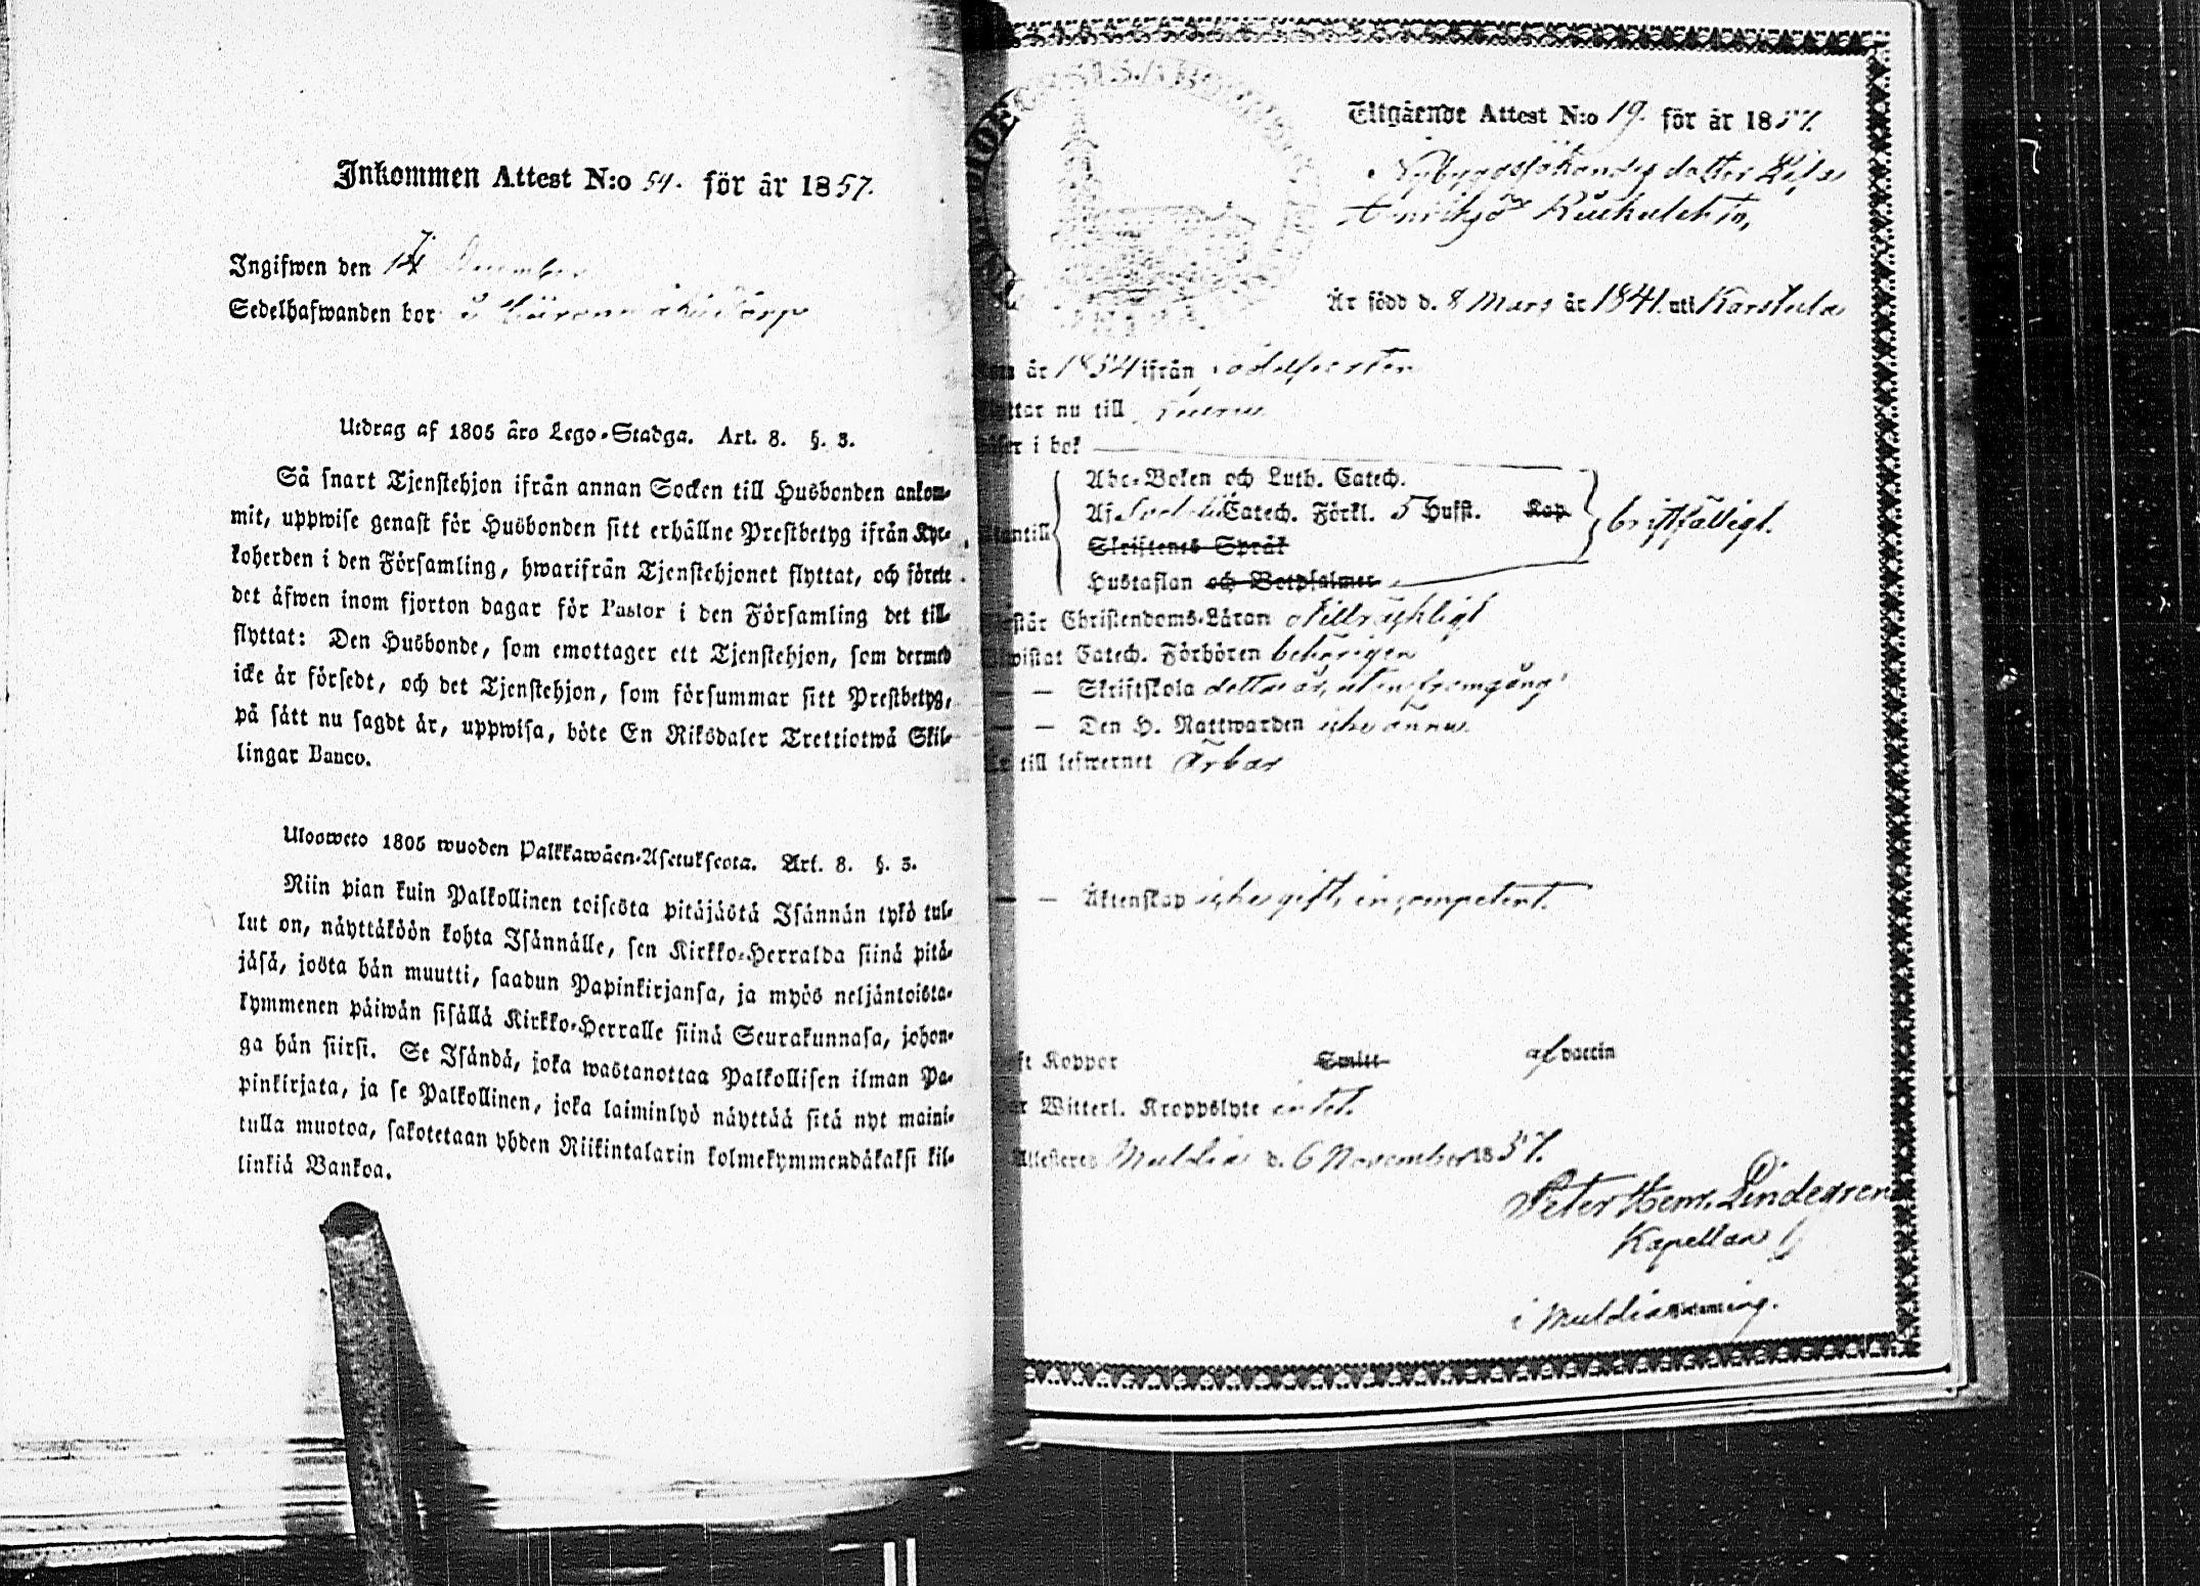 Inkommen Attest N:o 54. för år 1857.
Ingifwen den 14 December
Sedelhafwanden bor å torp
Utdrag af 1805 års Lego-Stadga. Art. 8. §. 3.
Så snart Tjenstehjon ifrån annan Socken till Husbonden ankom-
mit, uppwise genast för Husbonden sitt erhållne Prestbetyg ifrån Kyr-
koherden i den Församling, hwarifrån Tjenstehjonet flyttat, och förete
det äfwen inom fjorton dagar för Pastor i den Församling det till-
flyttat: Den Husbonde, som emottager ett Tjenstehjon, som dermed
icke är försedt, och det Tjenstehjon, som försummar sitt Prestbetyg,
på sätt nu sagdt är, uppwisa, böte En Riksdaler Trettiotwå Skil-
lingar Banco.
Ulosweto 1805 wuoden Palkkawäen-Asetuksesta. Art. 8. §. 3.
Niin pian kuin Palkollinen toisesta pitäjästä Isännän tykö tul-
lut on, näyttäköön kohta Isännälle, sen Kirkko-Herralda siinä pitä-
jäsä, josta hän muutti, saadun Papinkirjansa, ja myös neljäntoista-
kymmenen päiwän sisällä Kirkko-Herralle siinä Seurakunnasa, johon-
ga hän siirsi. Se Isändä, joka wastanottaa Palkollisen ilman Pa-
pinkirjata, ja se Palkollinen, joka laiminlyö näyttää sitä nyt maini-
tulla muotoa, sakotetaan yhden Riikintalarin kolmekymmendäkaksi kil-
linkiä Bankoa.
Utgående Attest N:o 19. för år 1857.
Nybyggssökandes dotter Lisa
Henriksdr
Är född d. 8 Mars år 1841. uti Karstula
år 1854 ifrån födelseorten
nu till
i bok
Abc-Boken och Luth. Catech.
Af Svebelii Catech. Förkl. 5 Hufst. Kap
Skriftenes Språk
Hustaflan och Botpsalmer
bristfälligt.
Christendoms-Läran otillräckligt
Catech. Förhören behörigen
— — Skriftskola detta år, utan framgång
— — Den H. Nattwarden icke ännu.
till lefwernet Ärbar
— — Äktenskap icke gift, incompetent.
Koppor Smitt af vaccin
Witterl. Kroppslyte intet.
Attesteras Muldia d. 6 November 1857.
Peter Henr. Lindegren
Kapellan
i Muldia Församling.